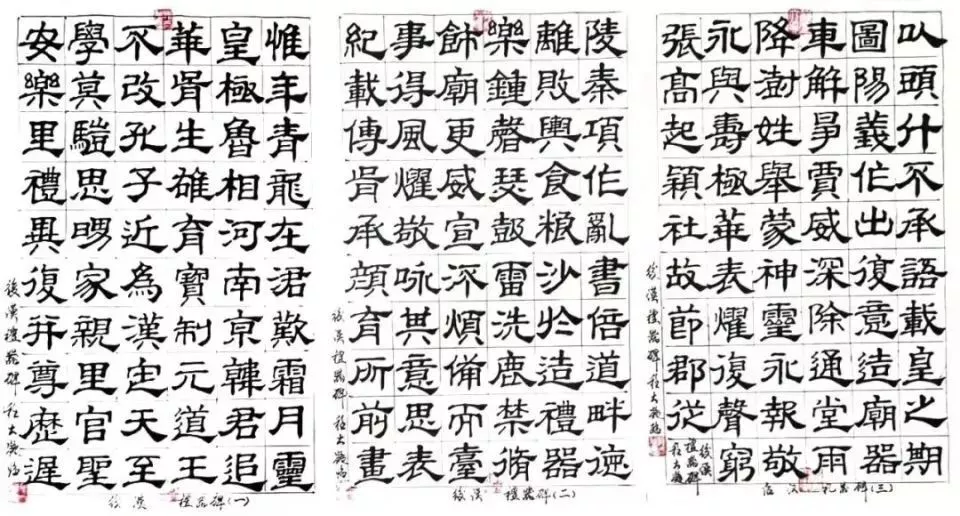 惟年青龍在涒歎霜月靈
皇極魯相河南京韓君追
華胥生雄育寶制元道王
不改孔子近為漢定天至
學莫驥思家親里官聖
安樂里禮異復并尊歷遲
後漢禮器碑
後漢 禮器碑(一)
陵秦項作亂書倍道畔德
離敗輿食糧沙於造禮器
樂鍾磬瑟鼓雷洗鹿禁脩
飾廟更威宣汙煩備而臺
事得風燿敬咏其意思表
紀載傳胥承顏育所前畫
後漢禮器碑
後漢 禮器碑(二)
以頭什不承語載皇之期
圖陽義作出復意造廟器
車解爭賈威深除通堂雨
降澍姓舉蒙神靈永報敬
永與壽極華表燿復聲窮
張高起穎社故節郡從
後漢禮器碑
後漢禮器碑
后汉 礼器碑(三)